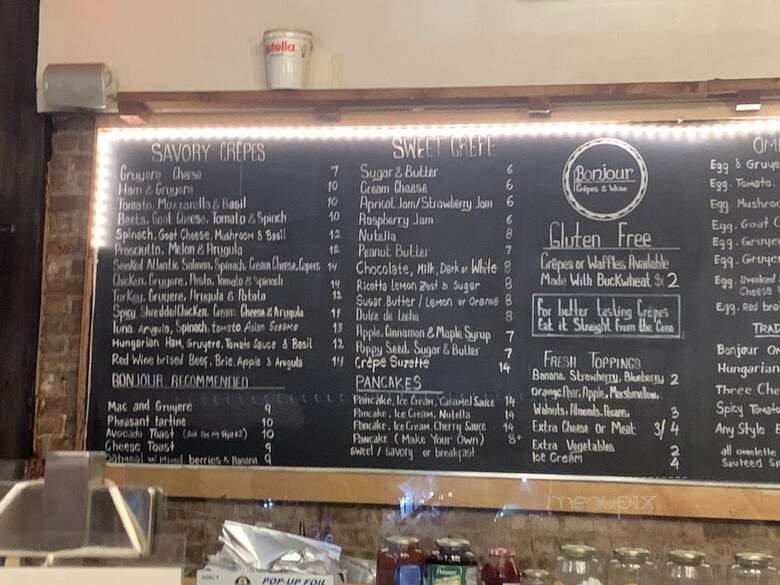 nutella
SAVORY CRÊPES
Gruyere Cheese 7
Ham & Gruyere 10
Tomato, Mozzarella & Basil 10
Beets, Goat Cheese, Tomato & Spinch 10
Spinach, Goat Cheese, Mushroom & Basil 12
Prosciutto, Melon & Arugula 12
Smoked Atlantic Salmon, Spinach, Cream Cheese, Capers 14
Chicken, Gruyere, Pesto, Tomato & Spinach 14
Turkey, Gruyere, Arugula & Potato 12
Spicy Shredded Chicken, Cream Cheese & Arugula 11
Tuna, Arugula, Spinach, tomato Asian Sesame 13
Hungarian Ham, Gruyere, Tomato Sauce & Basil 12
Red Wine brised Beef, Brie, Apple & Arugula 14
BONJOUR RECOMMENDED
Mac and Gruyere 9
Pheasant tartine 10
Avocado Toast 10
Cheese Toast 9
Oatmeal w/ Mixed berries & Banana 9
SWEET CRÊPE
Sugar & Butter 6
Cream Cheese 6
Apricot Jam/Strawberry Jam 6
Raspberry Jam 6
Nutella 8
Peanut Butter 7
Chocolate, Milk, Dark or White 8
Ricotta Lemon Zest & Sugar 8
Sugar Butter / Lemon or Orange 8
Dulce de Leche 8
Apple, Cinnamon & Maple Syrup 7
Poppy Seed, Sugar & Butter 7
Crêpe Suzette 14
PANCAKES
Pancake, Ice Cream, Caramel Sauce 14
Pancake, Ice Cream, Nutella 14
Pancake, Ice Cream, Cherry Sauce 14
Pancake (Make Your Own) 8+
sweet / savory or breakfast
Bonjour
Crêpes & Wine
Gluten Free
Crêpes or Waffles Available
Made With Buckwheat $2
For better tasting Crêpes
Eat it Straight From the Cone
FRESH TOPPINGS
Banana, Strawberry, Blueberry 2
Orange, Pear, Apple, Marshmallow,
Walnuts, Almonds, Pecans, 3
Extra Cheese or Meat 3/4
Extra Vegetables 2
Ice Cream 4
OM
Egg & Gruye
Egg, Tomato,
Egg Mushroo
Egg, Goat
Egg, Gruyer
Egg, Gruyer
Egg, Smoked
Cheese
Egg, Red br
TRAD
Bonjour Om
Hungarian
Three Ch
Spicy Toma
Any Style E
all omelette
Sauteed Sp
menupix
POP-UP FOIL